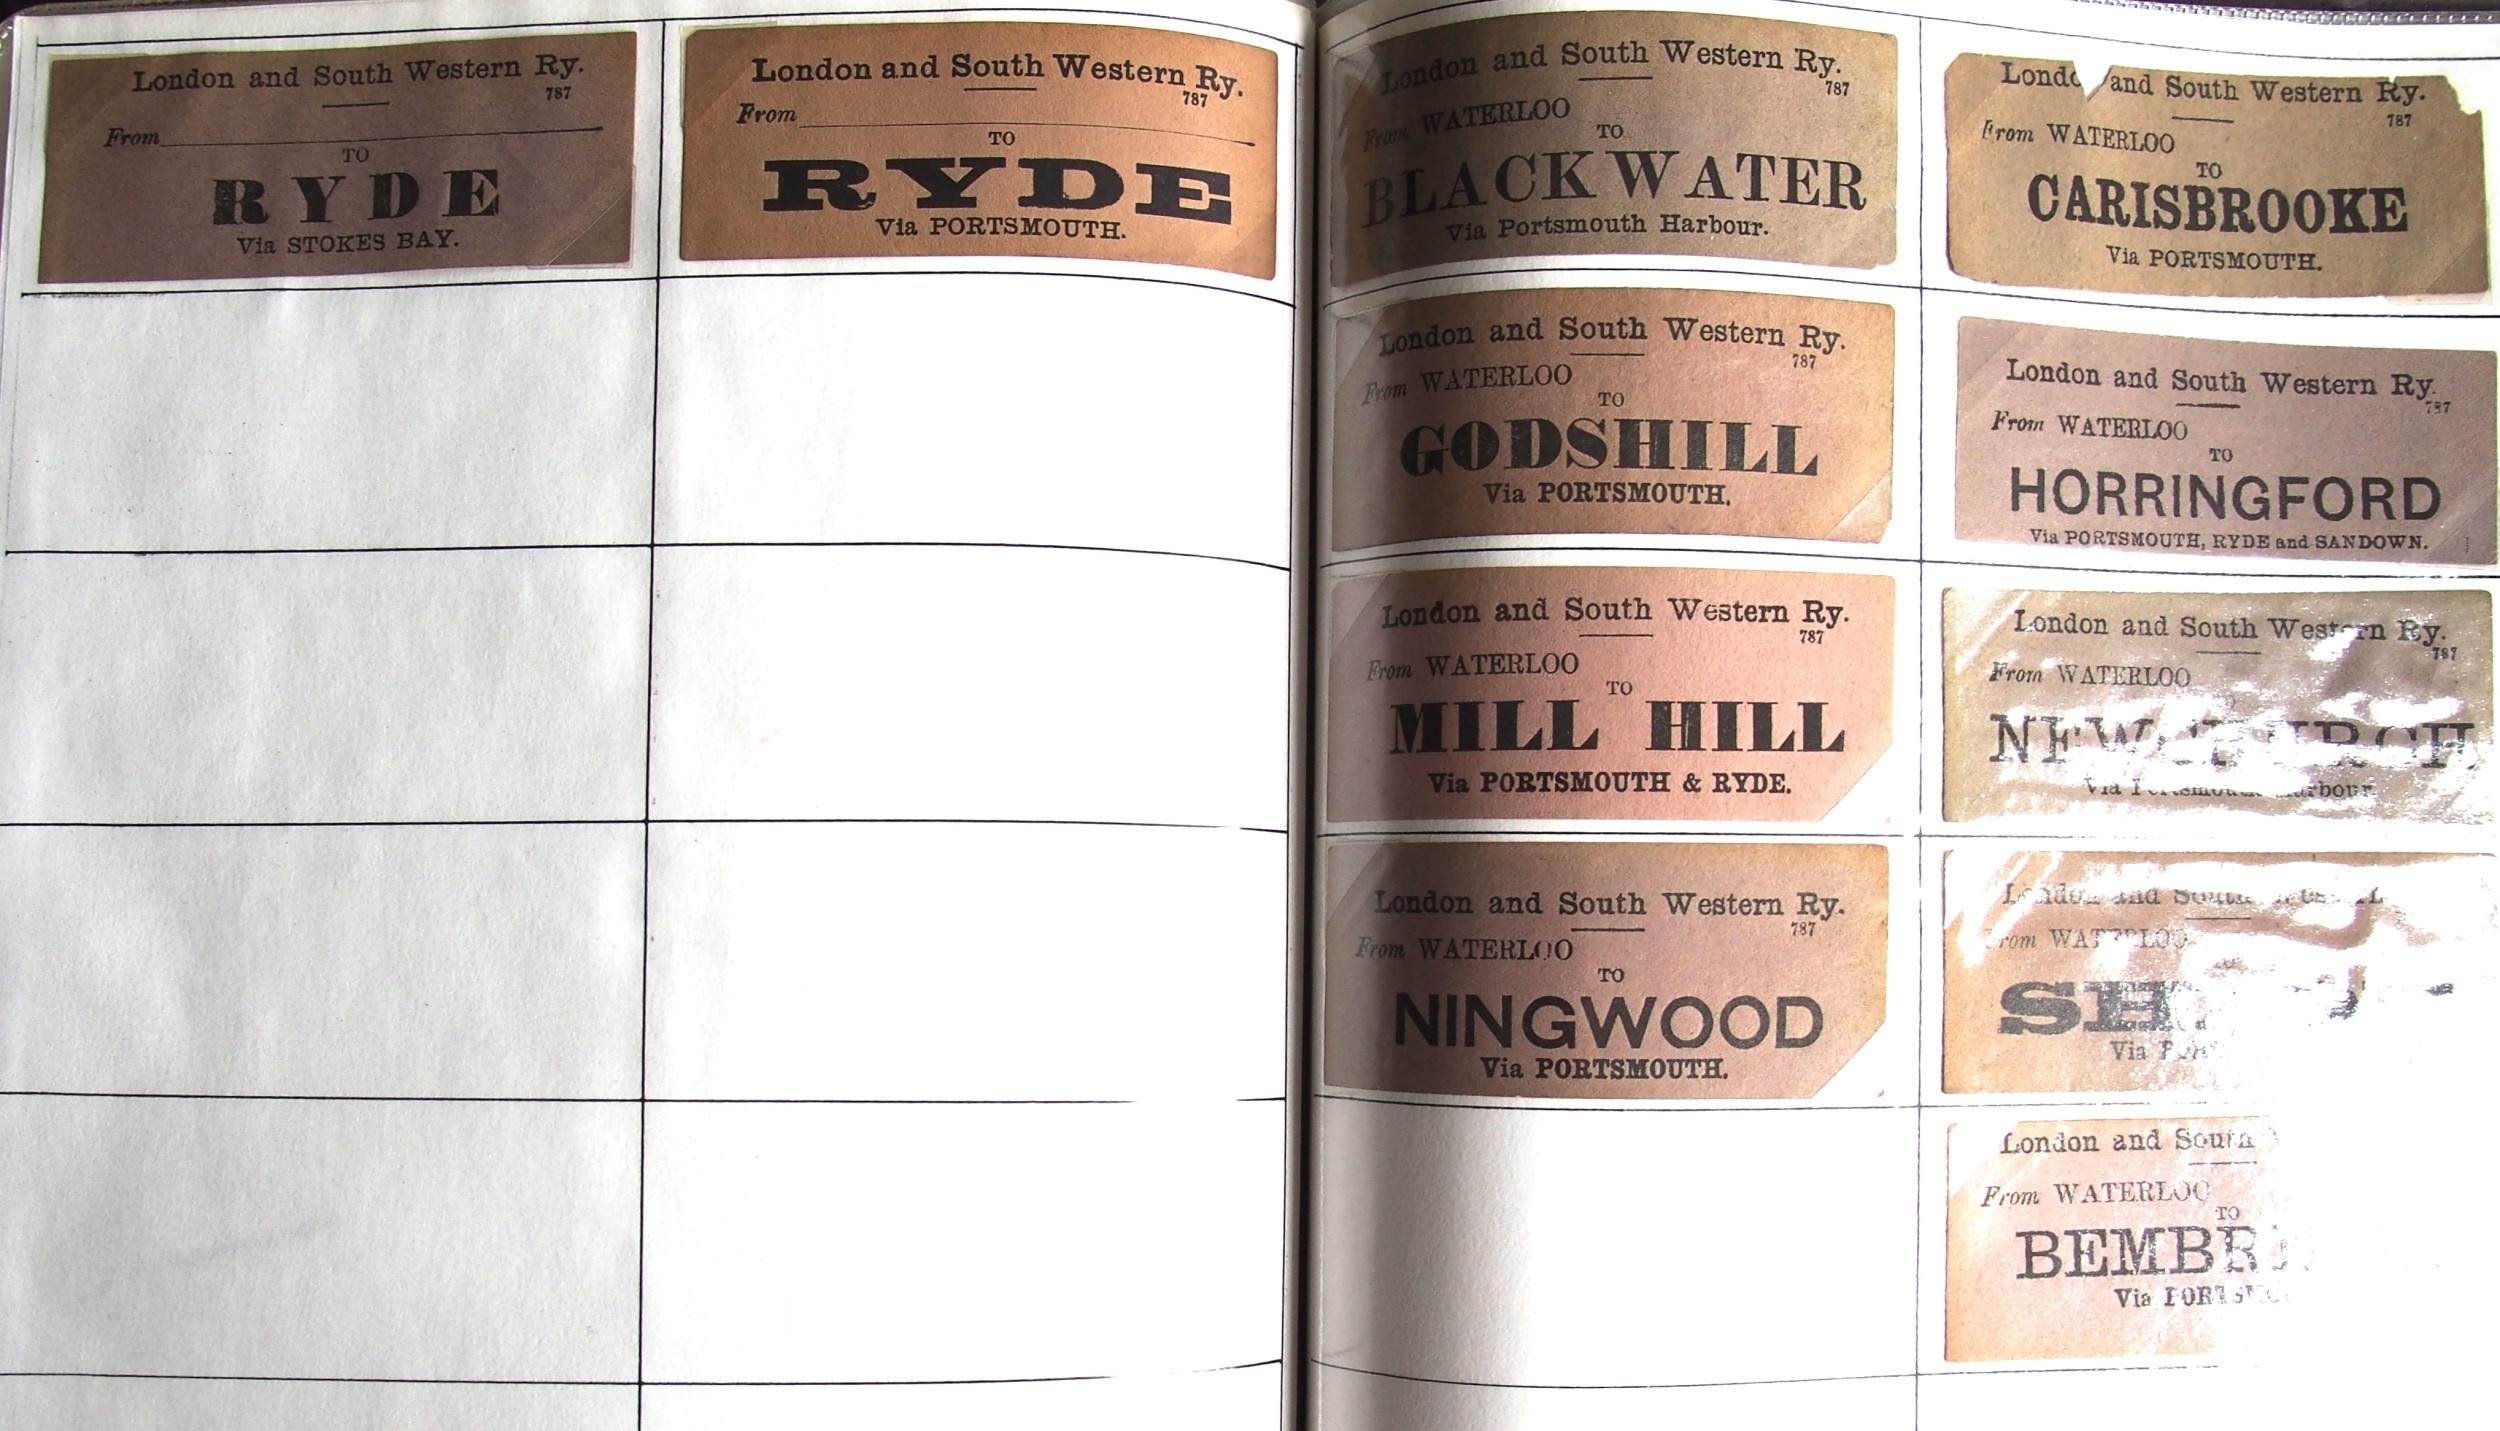 London and South Western Ry.
787
From
TO
RYDE
Via STOKES BAY.
London and South Western Ry.
787
From
TO
RYDE
Via PORTSMOUTH.
London and South Western Ry.
787
From WATERLOO
TO
BLACKWATER
Via Portsmouth Harbour.
London and South Western Ry.
787
From WATERLOO
TO
CARISBROOKE
Via PORTSMOUTH.
London and South Western Ry.
787
From WATERLOO
TO
GODSHILL
Via PORTSMOUTH.
London and South Western Ry.
787
From WATERLOO
TO
HORRINGFORD
Via PORTSMOUTH, RYDE and SANDOWN.
London and South Western Ry.
787
From WATERLOO
TO
MILL HILL
Via PORTSMOUTH & RYDE.
London and South Western Ry.
787
From WATERLOO
NEWCHURCH
Via Portsmouth Harbour
London and South Western Ry.
787
From WATERLOO
TO
NINGWOOD
Via PORTSMOUTH.
London and South
From WATERLOO
Via
London and South
From WATERLOO
TO
Via